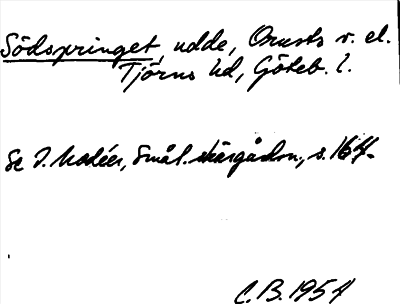 Södspringet, udde, Orusts v. el.
Tjörns hd, Göteb. l.
Se I. Modéer, Smål. skärgården, s. 164.
C.B. 1954